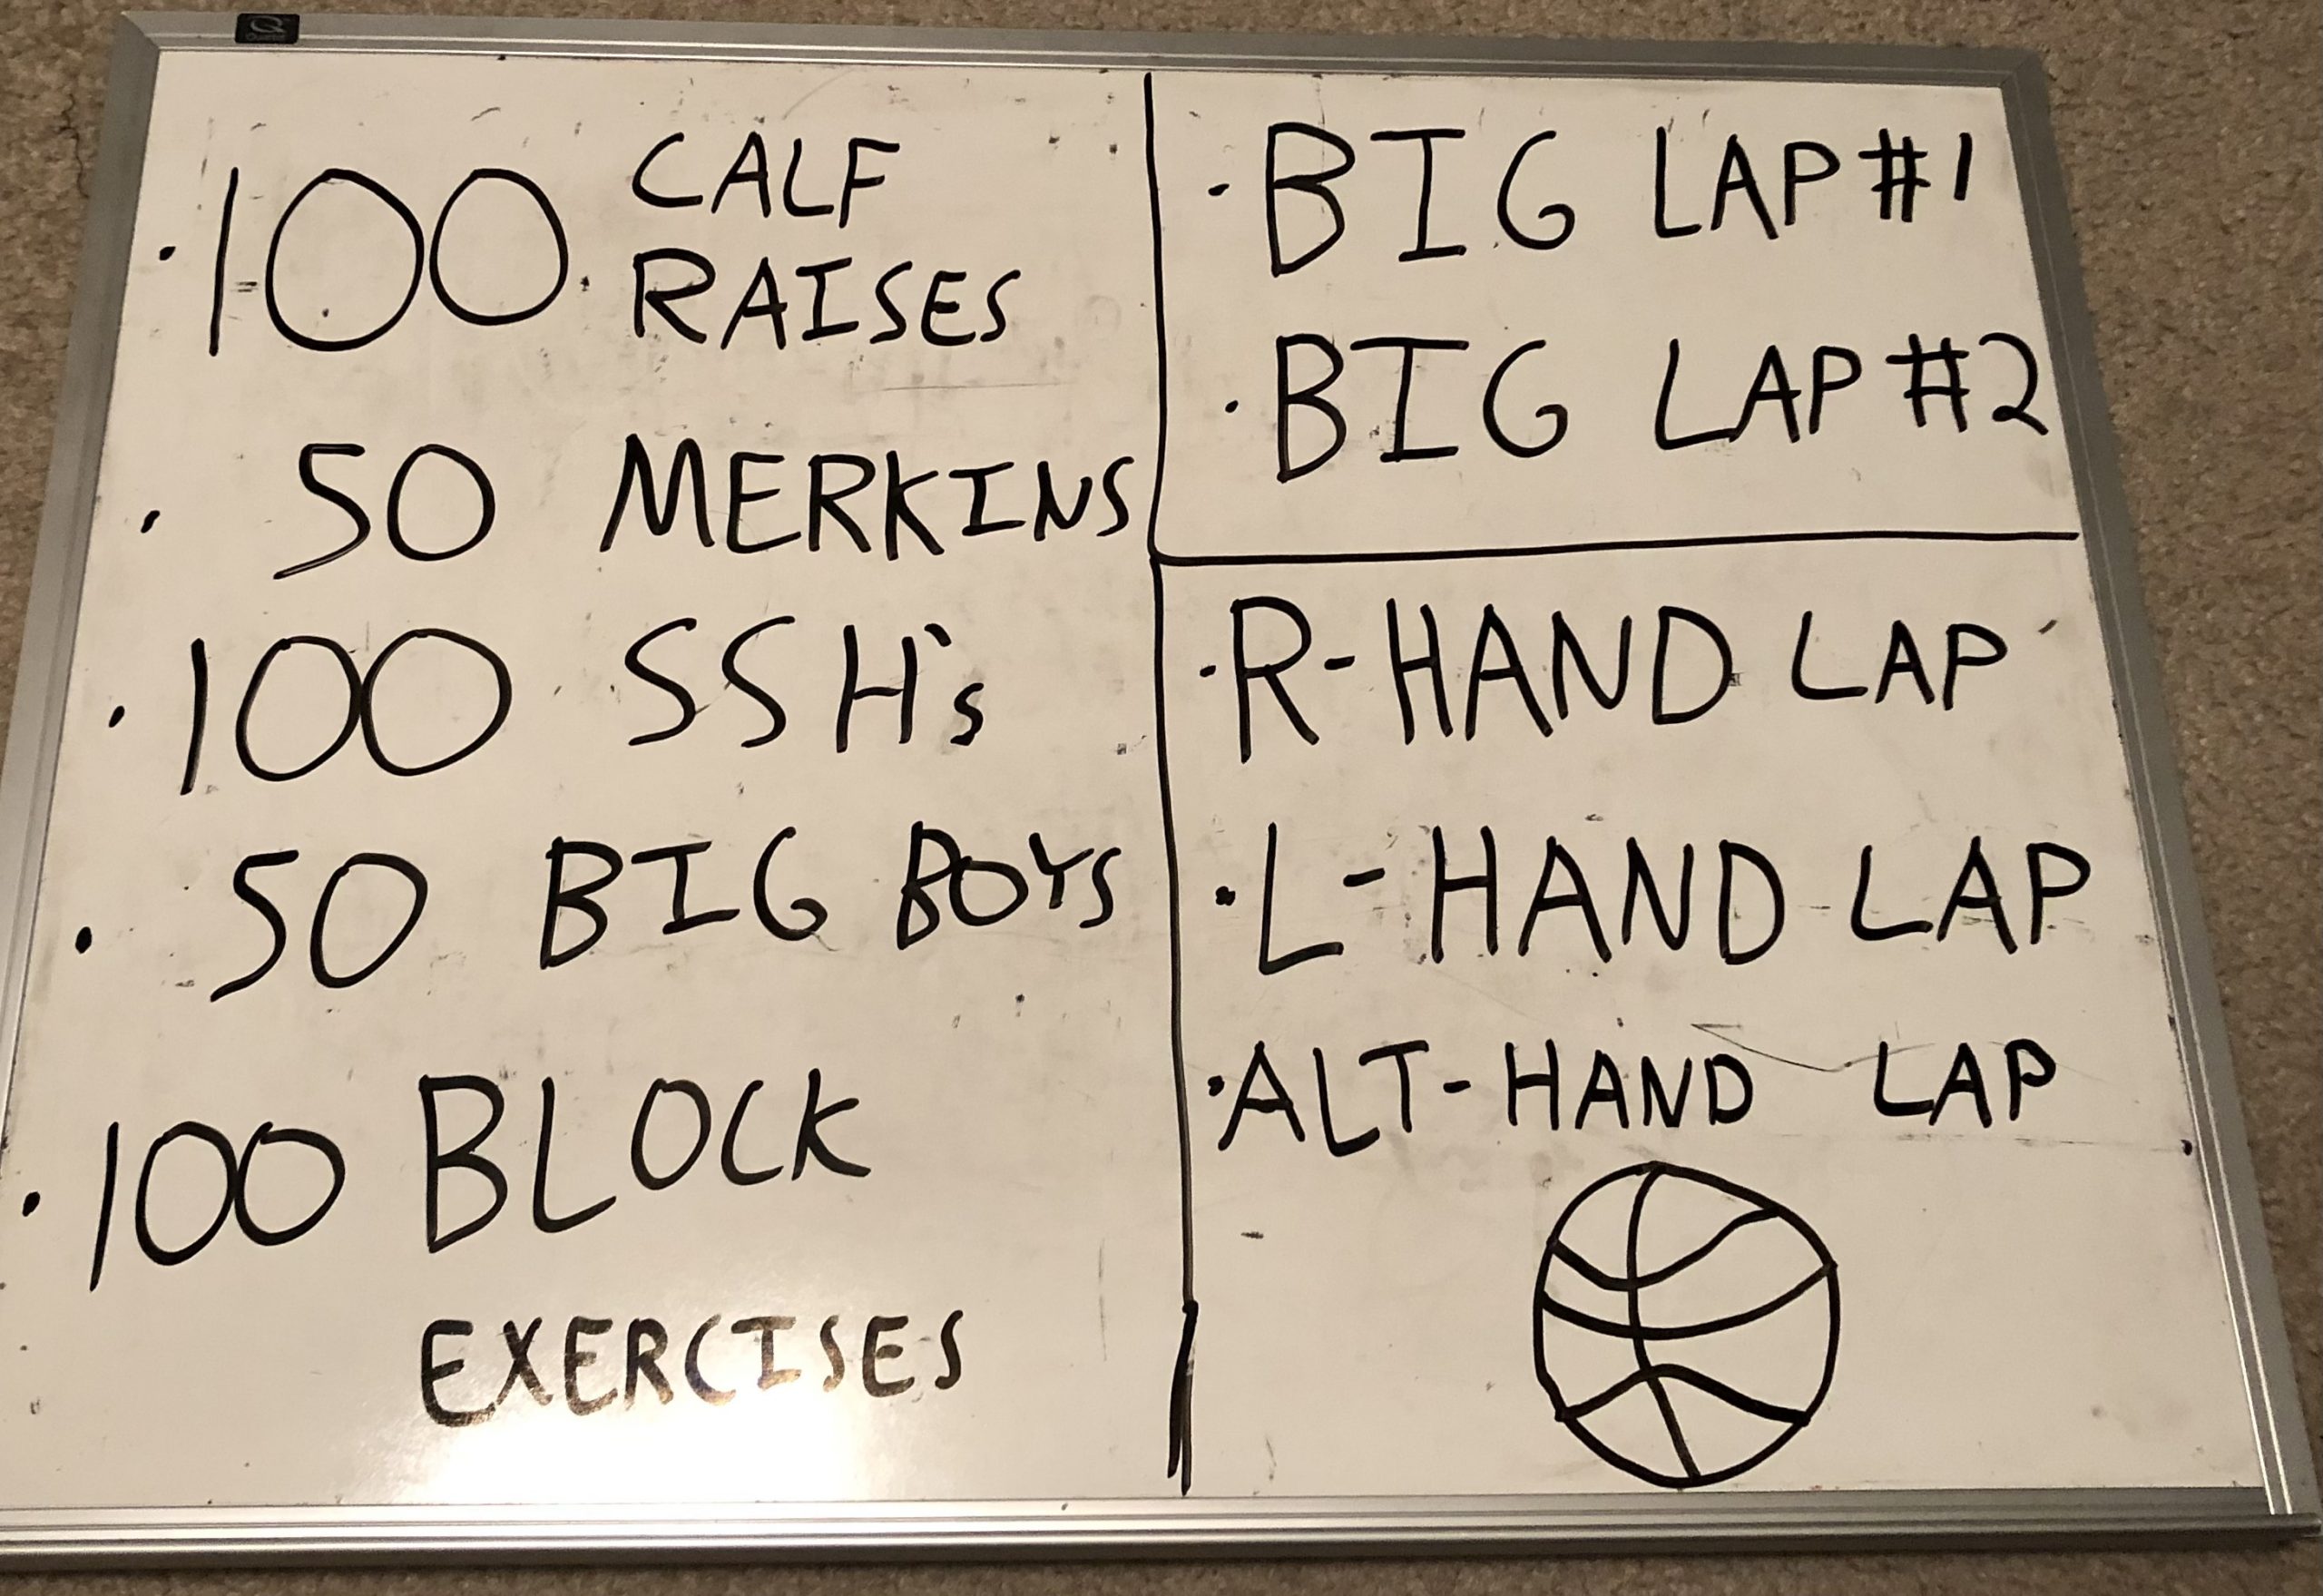 · 100 CALF
RAISES
· 50 MERKINS
· 100 SSH's
· 50 BIG BOYS
· 100 BLOCK
EXERCISES
· BIG LAP #1
· BIG LAP #2
· R-HAND LAP
· L-HAND LAP
· ALT-HAND LAP